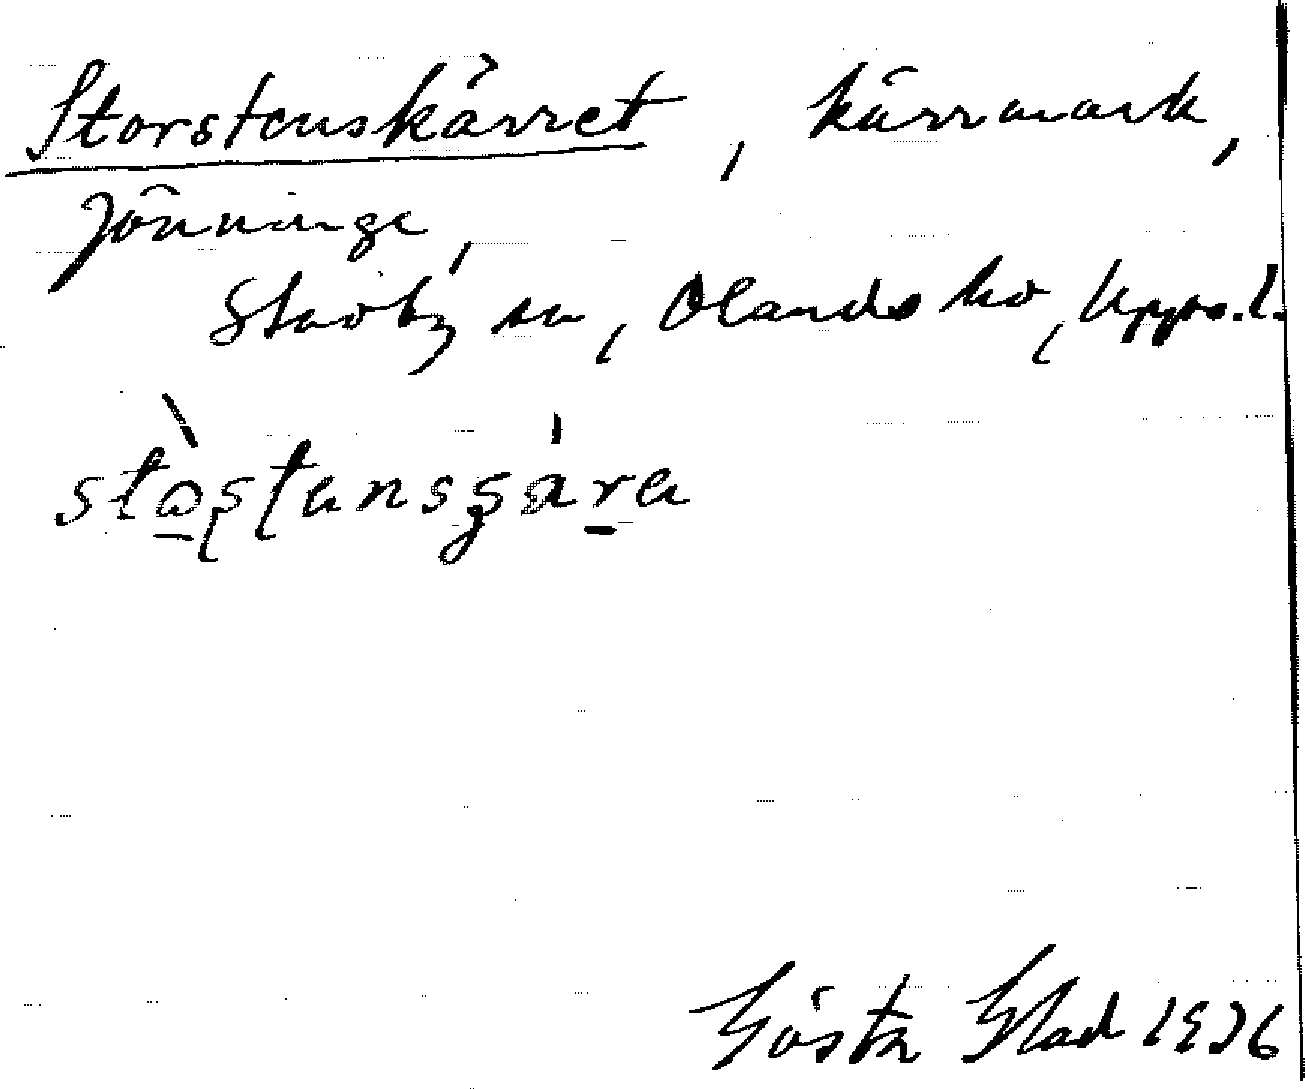 Storstenskärret, kärrmark,
Jönninge,
Stavby sn, Olands hd, Upps. l.
Gösta Blad 1936